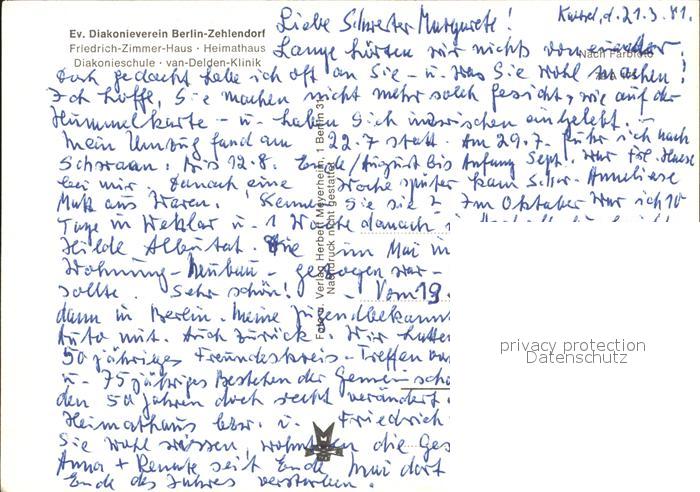 Liebe Schwester Margarete! Kassel, d. 21.3.81.
Ev. Diakonieverein Berlin-Zehlendorf
Friedrich-Zimmer-Haus · Heimathaus
Diakonieschule · van-Delden-Klinik
Lange hörten wir nichts von einander.
Nach Farbfoto
Doch gedacht habe ich oft an Sie – u. was Sie wohl machen!
Ich hoffe, Sie machen nicht mehr solch Gesicht, wie auf der
Hummelkarte – u. haben Sich inzwischen eingelebt. –
Mein Umzug fand am 22.7 statt. Am 29.7. fuhr ich nach
Schwaan. Bis 12.8. Ende/August bis Anfang Sept. war Frl.
bei mir. Danach eine Woche später kam Schw. Anneliese
Mutz aus Waren. Kennen Sie sie? Im Oktober war ich 10
Tage in Wetzlar u. 1 Woche danach
Hilde Albutat. Die im Mai in
Wohnung – Neubau – gezogen war –
sollte. Sehr schön! – Vom 19.
dann in Berlin. Meine Jugendbekannt
Auto mit. Auch zurück. Wir hatten
50 jähriges Freundeskreis-Treffen
u. 75 jähriges Bestehen der Gemeinscha
den 50 Jahren doch recht verändert.
Heimathaus bzw. i. Friedrich
Sie wohl wissen, wohnten die Ges
Anna + Renate seit Ende Mai dort
Ende des Jahres verstorben.
Foto u. Verlag Herbert Meyerheim, 1 Berlin 31
Nachdruck nicht gestattet
privacy protection
Datenschutz